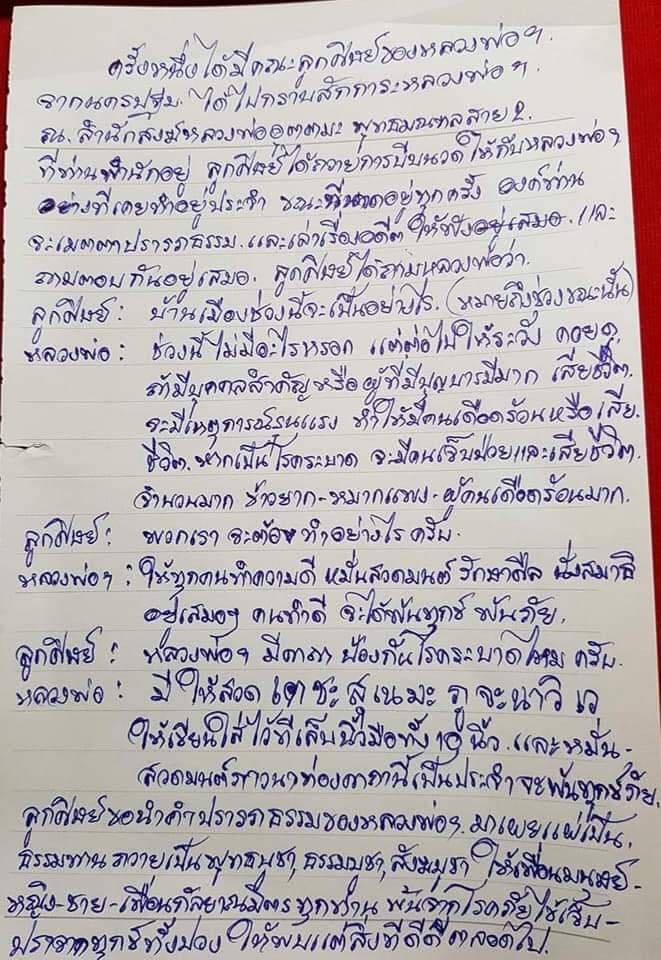 ครั้งหนึ่งได้มีคณะลูกศิษย์ของหลวงพ่อฯ
จากนครปฐม ได้ไปกราบสักการะหลวงพ่อฯ
ณ. สำนักสงฆ์หลวงพ่ออุตตมะ พุทธมณฑลสาย 2.
ที่ท่านพำนักอยู่ ลูกศิษย์ได้ถวายการบีบนวดให้กับหลวงพ่อฯ
อย่างที่เคยทำอยู่ประจำ ขณะที่นวดอยู่ทุกครั้ง องค์ท่าน
จะเมตตาปรารภธรรม.และเล่าเรื่องอดีตให้ฟังอยู่เสมอ.และ
ถามตอบกันอยู่เสมอ. ลูกศิษย์ได้ถามหลวงพ่อว่า.
ลูกศิษย์ : บ้านเมืองช่วงนี้จะเป็นอย่างไร. (หมายถึงช่วงขณะนั้น)
หลวงพ่อ : ช่วงนี้ไม่มีอะไรหรอก แต่ต่อไปให้ระวัง คอยดู,
ถ้ามีบุคคลสำคัญหรือผู้ที่มีบุญบารมีมาก เสียชีวิต.
จะมีเหตุการณ์รุนแรง ทำให้มีคนเดือดร้อนหรือเสีย.
ชีวิต. หากเป็นโรคระบาด จะมีคนเจ็บป่วยและเสียชีวิต.
จำนวนมาก ข้าวยาก-หมากแพง-ผู้คนเดือดร้อนมาก.
ลูกศิษย์ : พวกเราจะต้องทำอย่างไรครับ.
หลวงพ่อฯ : ให้ทุกคนทำความดี หมั่นสวดมนต์ รักษาศีล นั่งสมาธิ
อยู่เสมอๆ คนทำดี จะได้พ้นทุกข์ พ้นภัย.
ลูกศิษย์ : หลวงพ่อฯ มีคาถาป้องกันโรคระบาดไหมครับ.
หลวงพ่อ : มี ให้สวด เตชะสุเนมะภูจะนาวิเว
ให้เขียนใส่ไว้ที่เล็บนิ้วมือทั้ง 10 นิ้ว.และหมั่น,
สวดมนต์ภาวนาท่องคาถานี้เป็นประจำจะพ้นทุกข์ภัย.
ลูกศิษย์ขอนำคำปรารภธรรมของหลวงพ่อฯ มาเผยแผ่เป็น.
ธรรมทานถวายเป็นพุทธบูชา ธรรมบูชา สังฆบูชา ให้เพื่อนมนุษย์-
หญิง-ชาย-เพื่อนกัลยาณมิตรทุกท่าน พ้นจากโรคภัยไข้เจ็บ-
ปราศจากทุกข์ทั้งปวง ให้พบแต่สิ่งที่ดีดีตลอดไป.